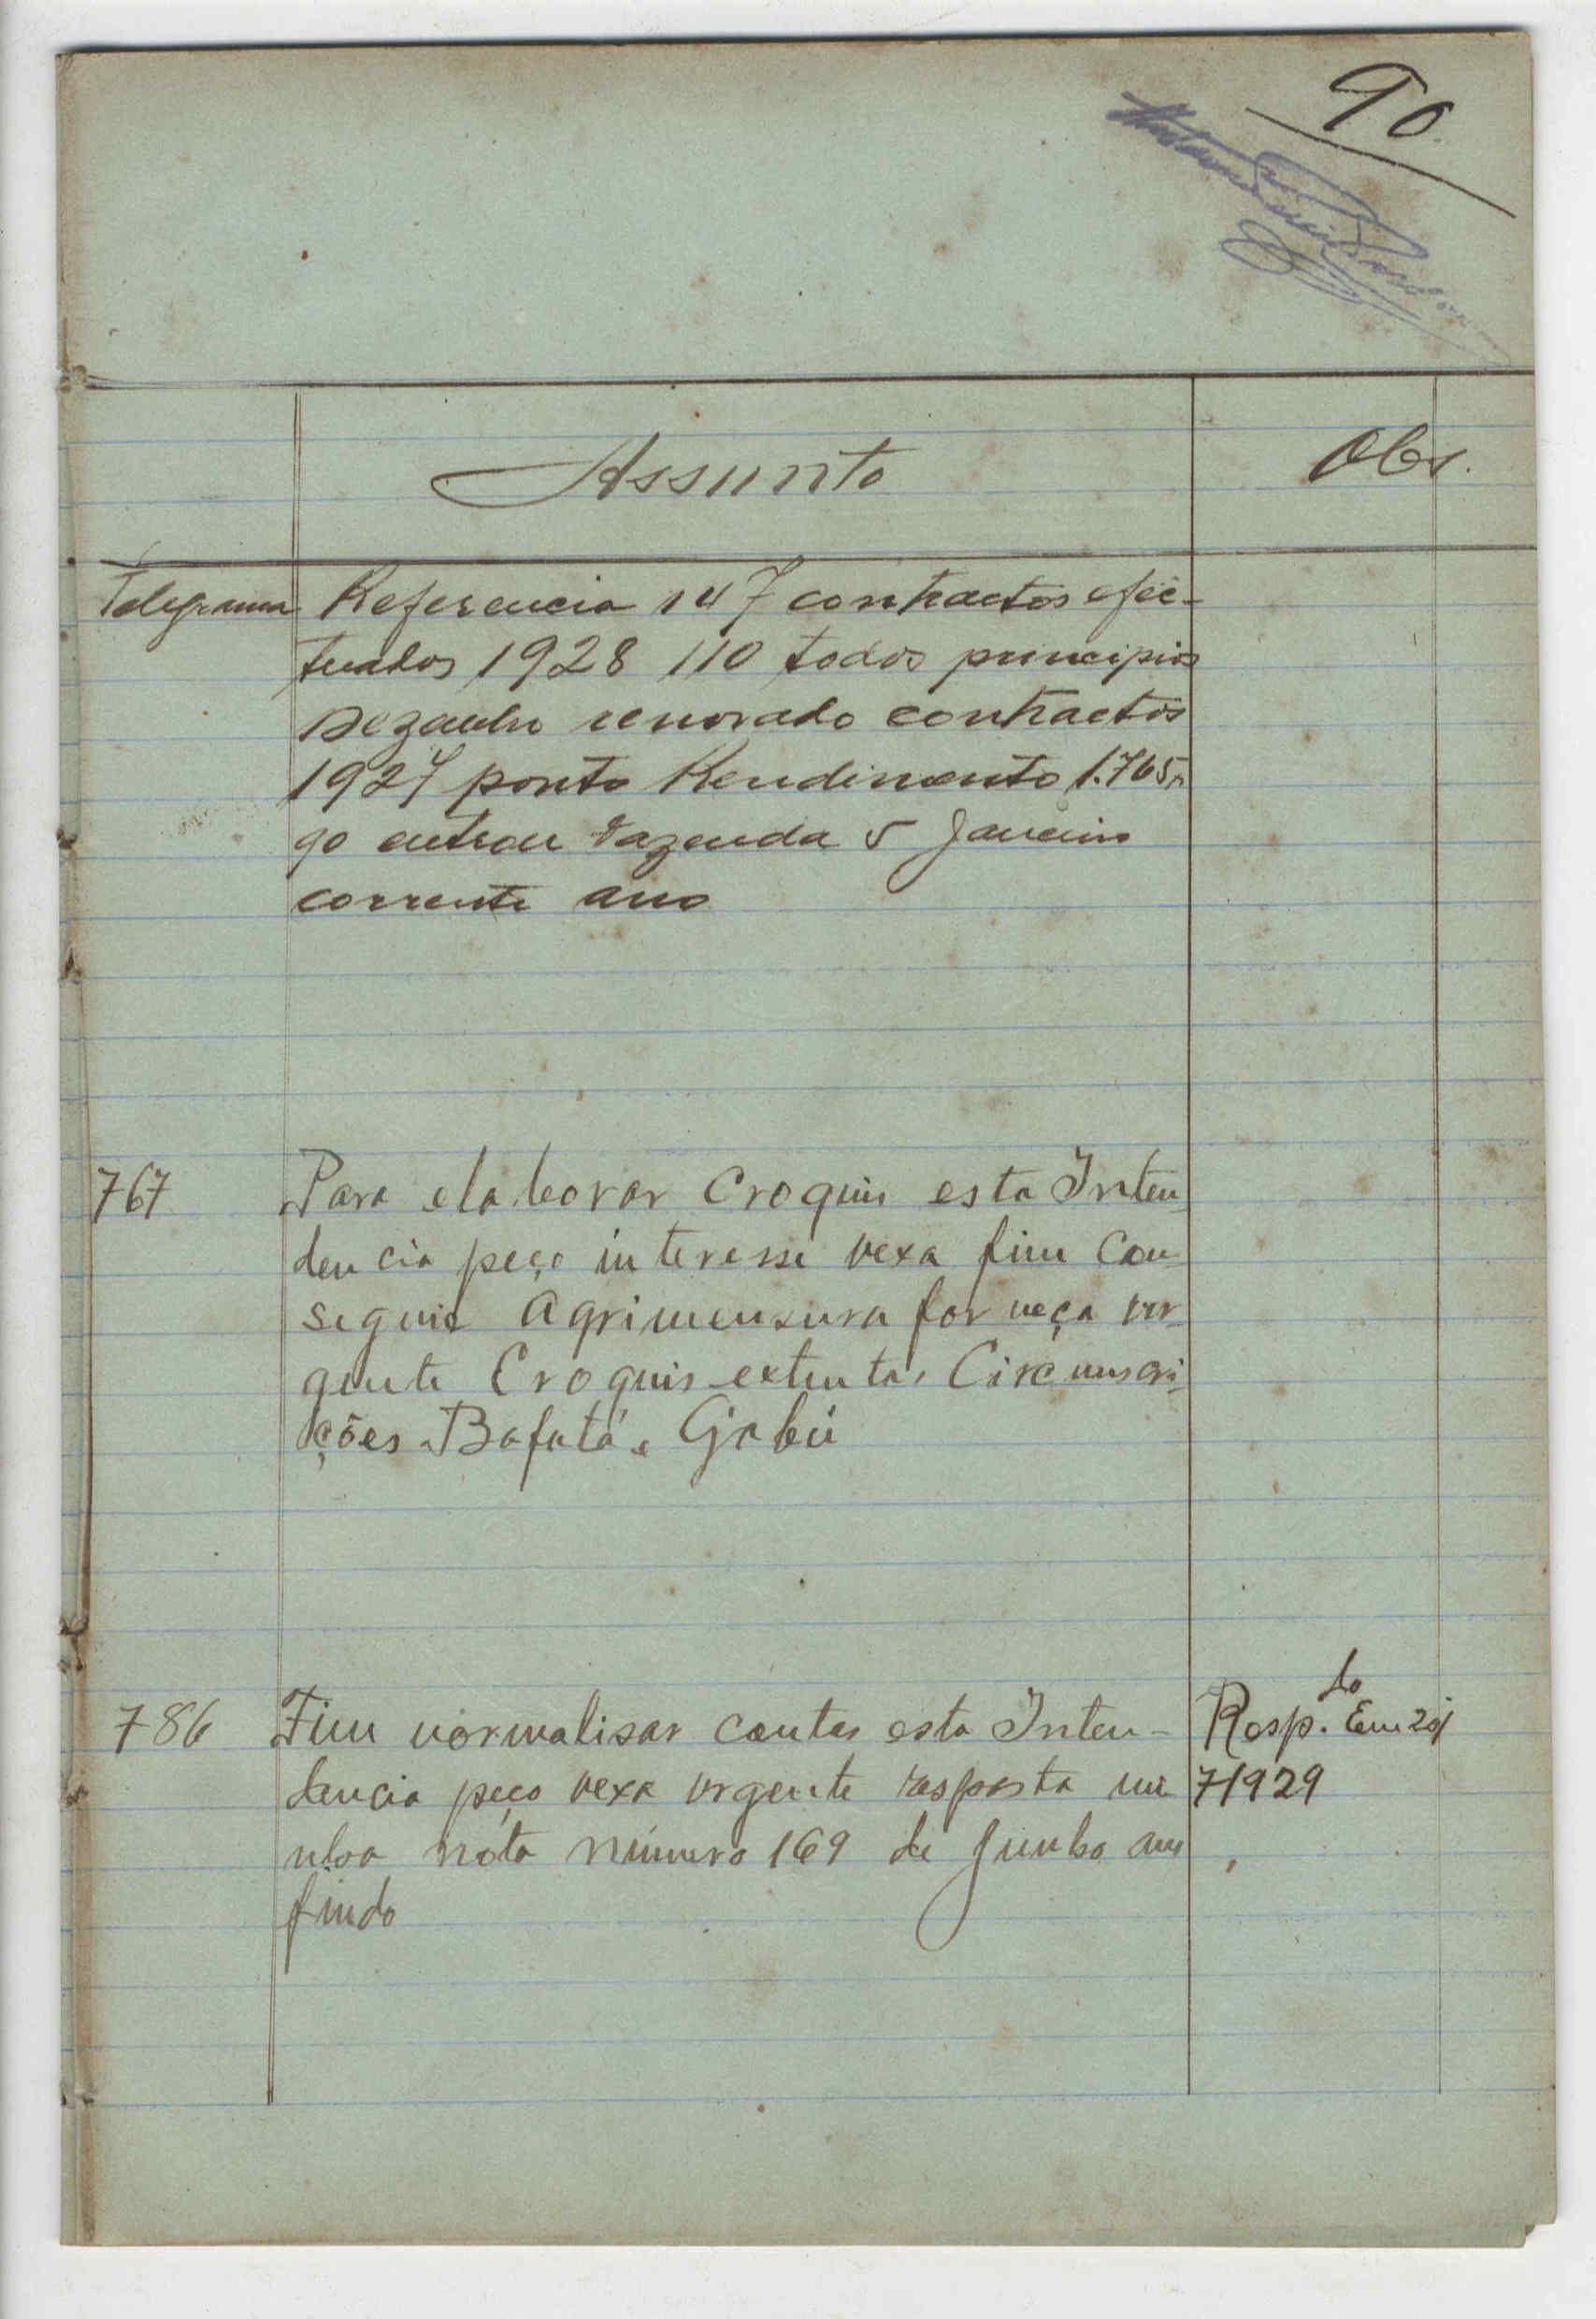 90
Assunto
Obs.
Telegrama
Referencia 147 contractos efec-
tuados 1928 110 todos principios
Dezembro renovado contractos
1927 ponto Rendimento 1.765
90 entrou Fazenda 5 Janeiro
corrente ano
767
Para elaborar Croquis esta Inten
dencia peço interesse vexa fim con
seguir Agrimensura forneça ur-
gente Croquis extintas Circunscri-
ções Bafatá e Gabú
786
Fim normalisar contas esta Inten-
dencia peço vexa urgente resposta mi
nha nota número 169 de Junho ano
findo
Resp.do Em 20/
7/929